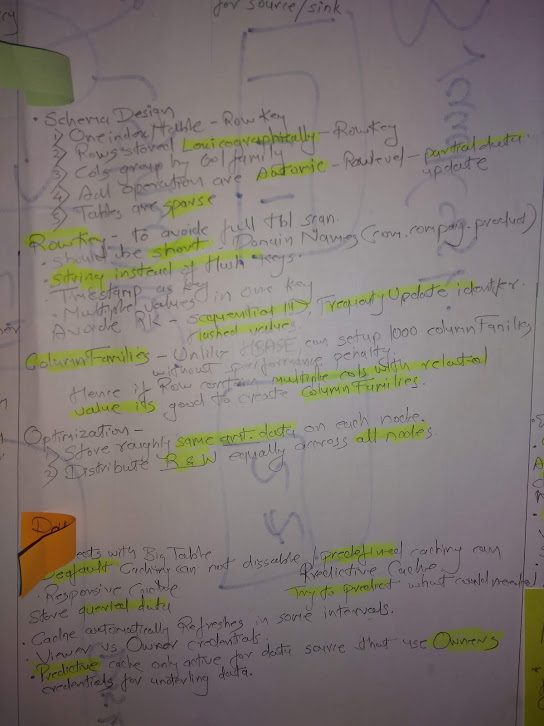 for source/sink
· Schema Design
1) One index/table - Row Key
2) Rows stored Lexicographically - RowKey
3) Cols group by Col family
4) All operation are Automic - Rowlevel - partial data update
5) Tables are sparse
RowKey - to avoide full tbl scan.
· Should be short · Domain Names (com.compay.product)
· String instead of Hash keys.
· Timestamp as key
· Multiple values in one key
Avoide RK - sequential ID, Frequently Update identifer.
Hashed values.
Column Families - Unlike HBASE, can setup 1000 column Families
without performance penalty
Hence if Row contain multiple cols with related
value its good to create Column Families.
Optimization -
1) Store roughly same amt. data on each node.
2) Distribute R & W equally across all nodes
with Big Table
Default Caching can not dissable predefined caching can
· Responsive Cache Predictive Cache
Store queried data Try to predict what could needed
· Cache automatically Refreshes in some intervals.
· Viewer vs Owner credentials.
· Predictive cache only active for data source that use Owners
credentials for underling data.